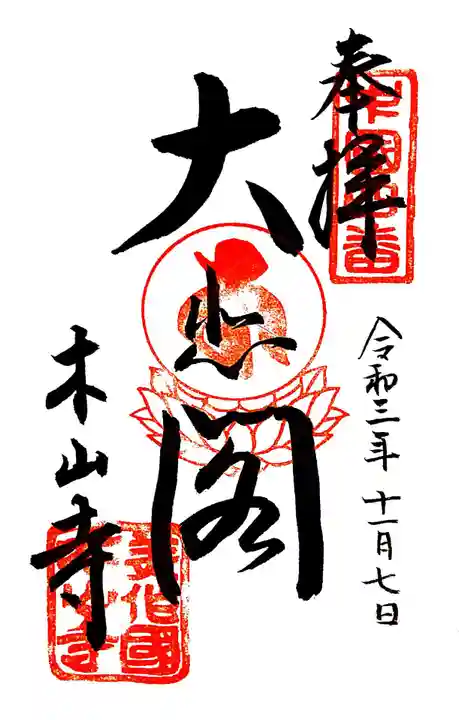 奉拝
令和三年十一月七日
大悲閣
木山寺